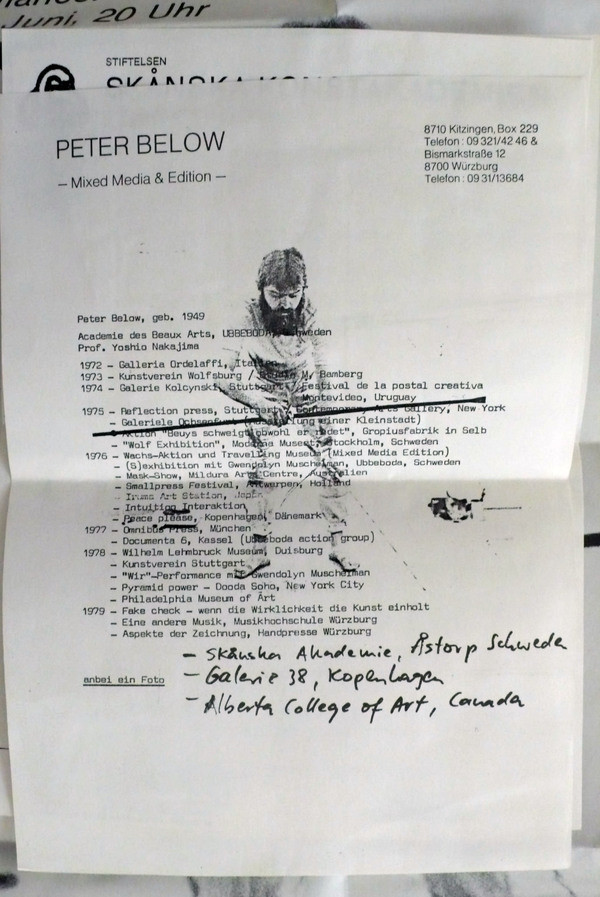 Juni, 20 Uhr
STIFTELSEN
SKÅNSKA
PETER BELOW
– Mixed Media & Edition –
8710 Kitzingen, Box 229
Telefon : 09 321/42 46 &
Bismarkstraße 12
8700 Würzburg
Telefon : 09 31/13684
Peter Below, geb. 1949
Academie des Beaux Arts, UBBEBODA, Schweden
Prof. Yoshio Nakajima
1972 – Galleria Ordelaffi, Italien
1973 – Kunstverein Wolfsburg / M. Bamberg
1974 – Galerie Kolcynski, Stuttgart / Festival de la postal creativa
Montevideo, Uruguay
1975 – Reflection press, Stuttgart / Contemporary Arts Gallery, New York
– Galeriele einer Kleinstadt)
– Aktion "Beuys schweigt obwohl er redet", Gropiusfabrik in Selb
– "Wolf Exhibition", Moderna Museet, Stockholm, Schweden
1976 – Wachs-Aktion und Travelling Museum (Mixed Media Edition)
– (S)exhibition mit Gwendolyn Muschelman, Ubbeboda, Schweden
– Mask-Show, Mildura Art Centre, Australien
– Smallpress Festival, Antwerpen, Holland
– Iruma Art Station, Japan
– Intuition Interaktion
– Peace please, Kopenhagen, Dänemark
1977 – Omnibus Press, München
– Documenta 6, Kassel (Ubbeboda action group)
1978 – Wilhelm Lehmbruck Museum, Duisburg
– Kunstverein Stuttgart
– "Wir"-Performance mit Gwendolyn Muschelman
– Pyramid power – Dooda Soho, New York City
– Philadelphia Museum of Art
1979 – Fake check – wenn die Wirklichkeit die Kunst einholt
– Eine andere Musik, Musikhochschule Würzburg
– Aspekte der Zeichnung, Handpresse Würzburg
– Skånska Akademie, Åstorp Schweden
anbei ein Foto – Galerie 38, Kopenhagen
– Alberta College of Art, Canada